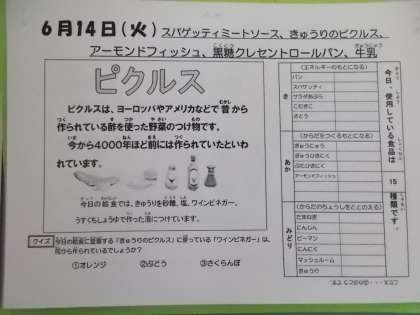 6月14日(火) スパゲッティミートソース、きゅうりのピクルス、
アーモンドフィッシュ、黒糖クレセントロールパン、牛乳
ピクルス
ピクルスは、ヨーロッパやアメリカなどで昔から
作られている酢を使った野菜のつけ物です。
今から4000年ほど前には作られていたといわ
れています。
今日の給食では、きゅうりを砂糖、塩、ワインビネガー、
うすくちしょうゆで作った液につけています。
クイズ
今日の給食に登場する「きゅうりのピクルス」に使っている「ワインビネガー」は、
何から作られているでしょうか?
①オレンジ ②ぶどう ③さくらんぼ
き
(エネルギーのもとになる)
パン
スパゲッティ
サラダあぶら
こむぎこ
さとう
あか
(からだをつくるもとになる)
ぎゅうにゅう
ぎゅうひきにく
ぶたひきにく
アーモンドフィッシュ
みどり
(からだのちょうしをととのえる)
たまねぎ
にんじん
ピーマン
にんにく
マッシュルーム
きゅうり
今日、使用している食品は
15
種類です。